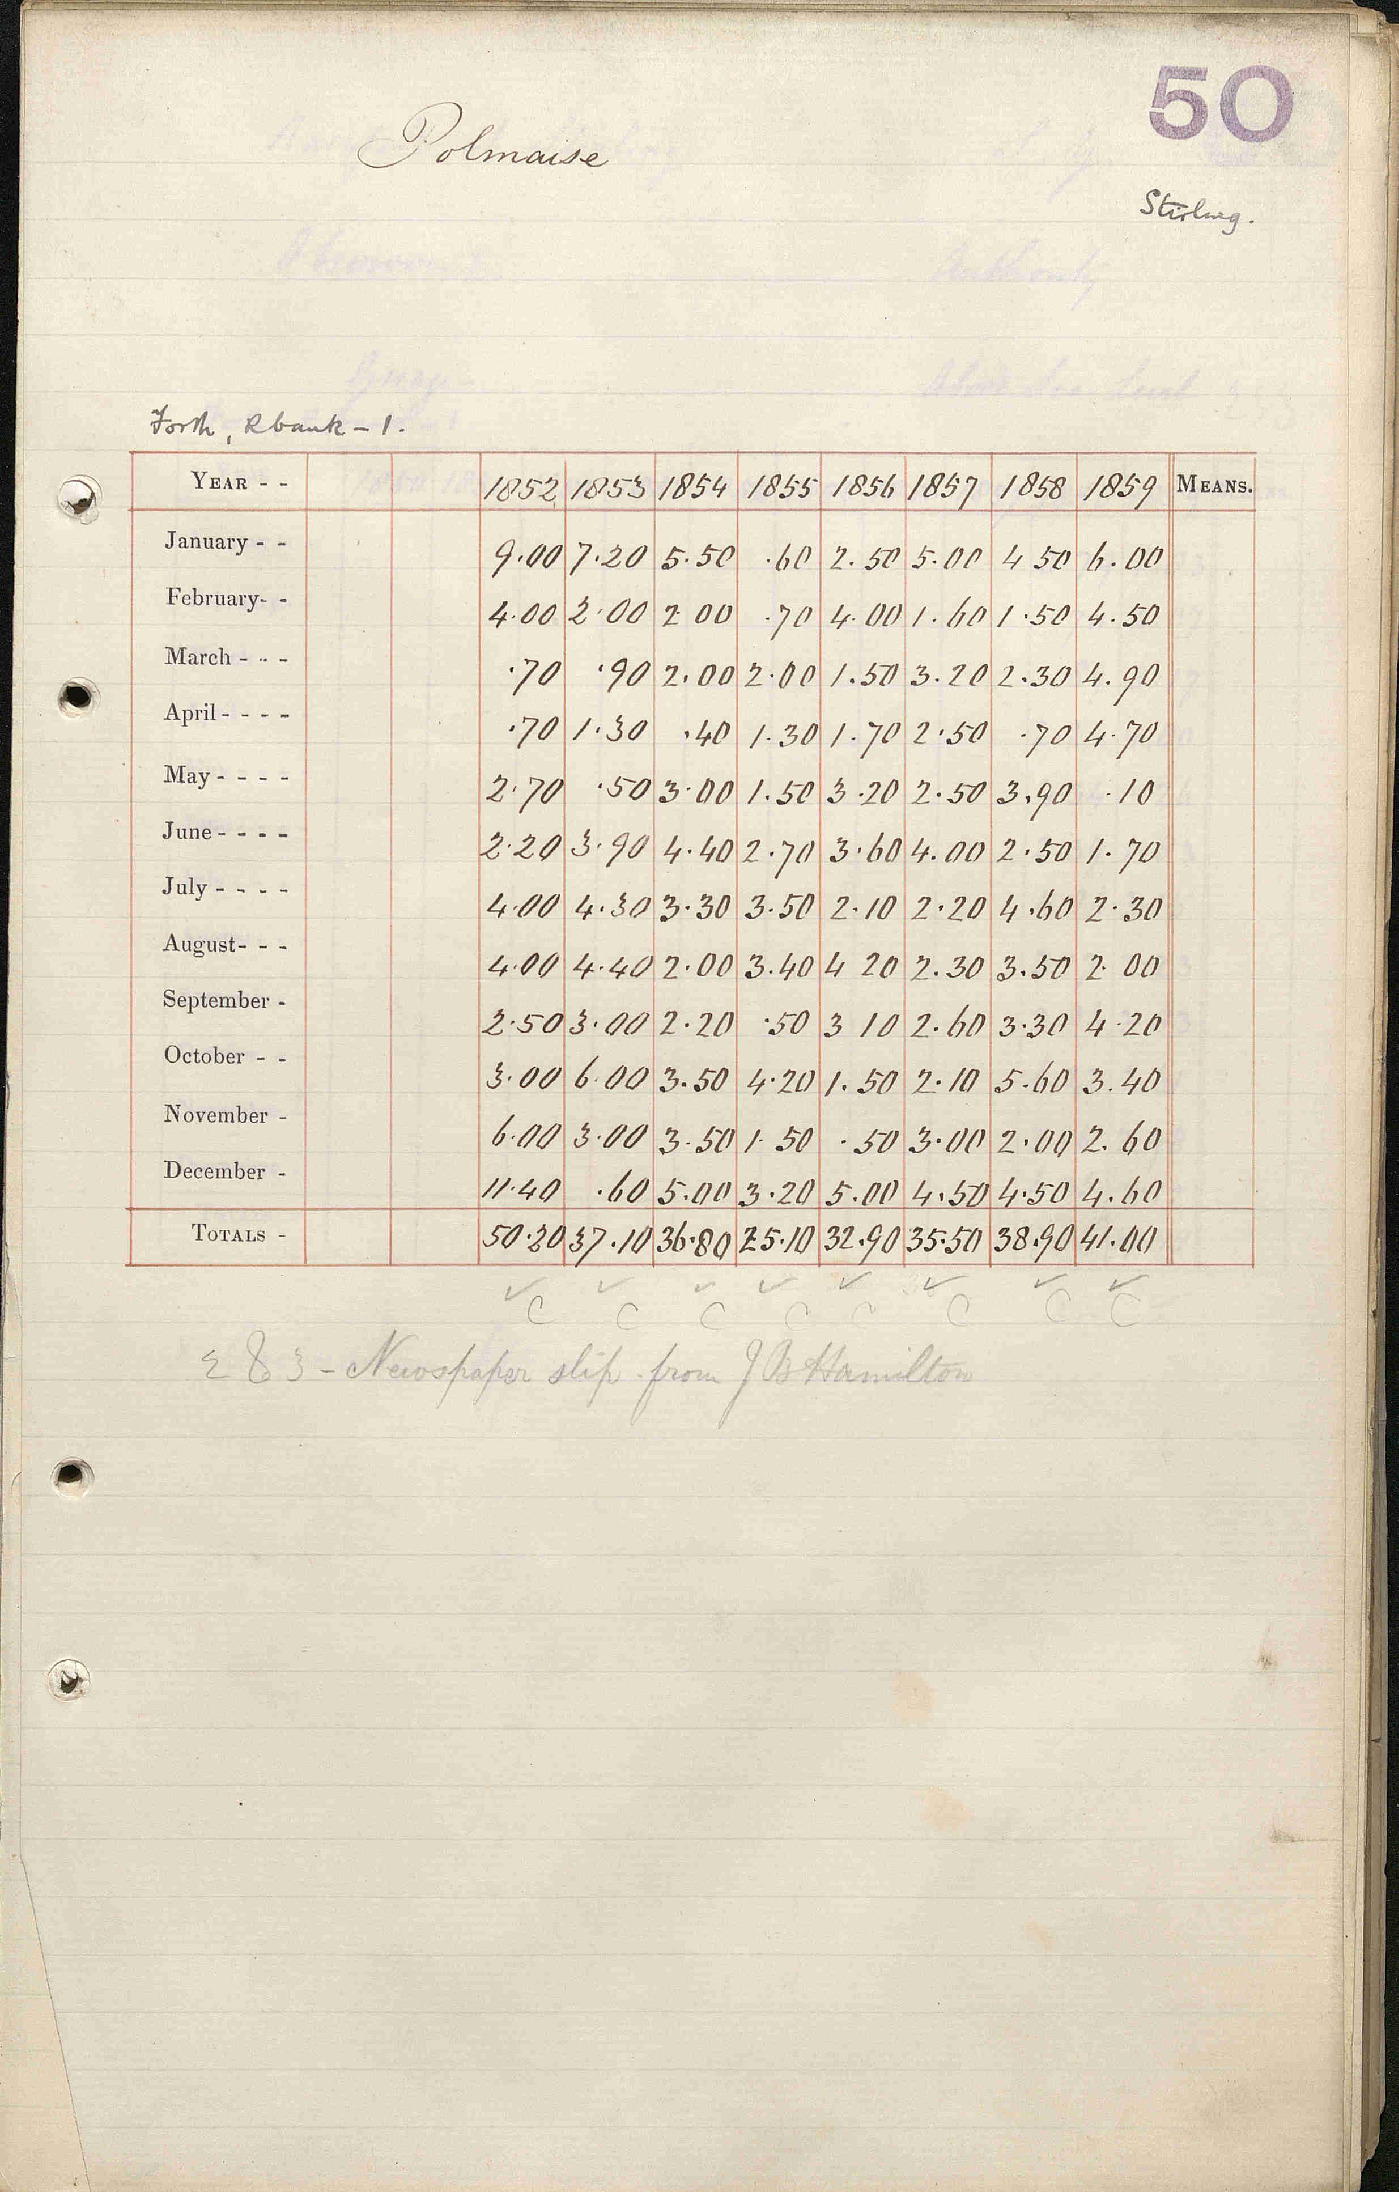 50
Polmaise
Stirling.
Forth, Rbank - 1.
YEAR - - 1852 1853 1854 1855 1856 1857 1858 1859 MEANS.
January - - 9.00 7.20 5.50 .60 2.50 5.00 4 50 6.00
February- - 4.00 2.00 2 00 .70 4.00 1.60 1.50 4.50
March - - - .70 .90 2.00 2.00 1.50 3.20 2.30 4.90
April - - - - .70 1.30 .40 1.30 1.70 2.50 .70 4.70
May - - - - 2.70 .50 3.00 1.50 3.20 2.50 3.90 .10
June - - - - 2.20 3.90 4.40 2.70 3.60 4.00 2.50 1.70
July - - - - 4.00 4.30 3.30 3.50 2.10 2.20 4.60 2.30
August- - - 4.00 4.40 2.00 3.40 4 20 2.30 3.50 2.00
September - 2.50 3.00 2.20 .50 3 10 2.60 3.30 4.20
October - - 3.00 6.00 3.50 4.20 1.50 2.10 5.60 3.40
November - 6.00 3.00 3.50 1.50 .50 3.00 2.00 2.60
December - 11.40 .60 5.00 3.20 5.00 4.50 4.50 4.60
TOTALS - 50.20 37.10 36.80 25.10 32.90 35.50 38.90 41.00
✓ ✓ ✓ ✓ ✓ ✓ ✓ ✓
C C C C C C C C
Newspaper slip from J B Hamilton